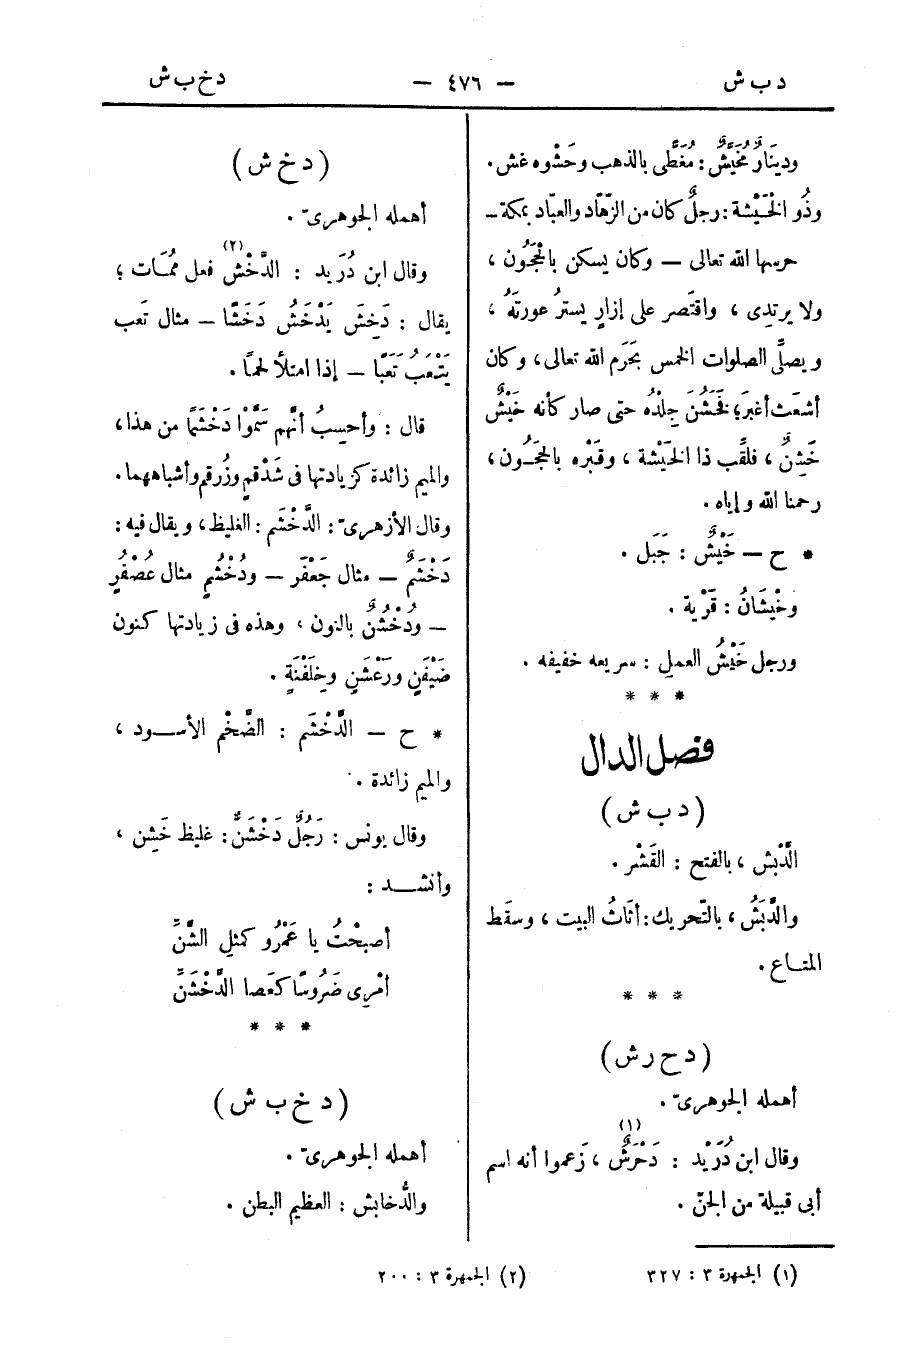 د ب ش — ٤٧٦ — د خ ب ش
ودينَارٌ مُخَيَّشٌ : مُغَطًّى بالذهب وحَشْوه غش .
وذُو الخَيْشة : رجلٌ كان من الزهّاد والعبّاد بمكة –
حرسها الله تعالى – وكان يسكن بالحَجُون ،
ولا يرتدِى ، واقتَصر على إزارٍ يسترُ عورتَهُ ،
ويصلَّى الصلوات الخمس بحَرَم الله تعالى ، وكان
أشعَث أغبرَ ؛ فخَشُنَ جِلْدُه حتى صار كأنه خَيْشٌ
خَشِنٌ ، فلقِّب ذا الخَيْشة ، وقَبْره بالحجَوُن ،
رحمنا الله وإياه .
* ح – خَيْشٌ : جَبَل .
وخَيْشَانُ : قَرْية .
ورجل خَيْشُ العملِ : سريعه خفيفه .
* * *
فصل الدال
( د ب ش )
الدَّبْش ، بالفتح : القَشْر .
والدَّبَشُ ، بالتّحريك : أثَاثُ البيت ، وسقَط
المتاع .
* * *
( د ح ر ش )
أهمله الجوهرىّ .
وقال ابن دُرَيْد : دَحْرَشٌ (١) ، زَعموا أنه اسم
أبى قبيلة من الجنّ .
(١) الجمهرة ٣ : ٣٢٧
( د خ ش )
أهمله الجوهرىّ .
وقال ابن دُرَيد : الدَّخْش (٢) فعل مُمَات ؛
يقال : دَخِشَ يَدْخَشُ دَخَشًا – مثال تَعب
يَتْعَبُ تَعَبًا – إذا امتلأ لحمًا .
قال : وأحسِبُ أنَّهم سَمَّوْا دَخْشَمًا من هذا ،
والميم زائدة كزيادتها فى شَدْقمٍ وزُرقمٍ وأشباههما .
وقال الأزهرىّ : الدَّخْشَم : الغليظ ، ويقال فيه :
دَخْشَمٌ – مثال جَعْفَر – ودُخْشُمٍ مثال عُصْفُرٍ
– ودُخْشُنٌ بالنون ، وهذه فى زيادتها كنون
ضَيْفَنٍ ورَعْشَنٍ وخِلَفْنَةٍ .
* ح – الدَّخْشَم : الضَّخْم الأسود ،
والميم زائدة .
وقال يونس : رَجُلٌ دَخْشَنٌّ : غليظ خَشِن ،
وأنشد :
أصبحْتُ يا عَمْرُو كمثلِ الشَّنِّ
أمْرِى ضَرُوسًا كعَصا الدَّخْشَنِّ
* * *
( د خ ب ش )
أهمله الجوهرىّ .
والدُّخابش : العظيم البطن .
(٢) الجمهرة ٣ : ٢٠٠